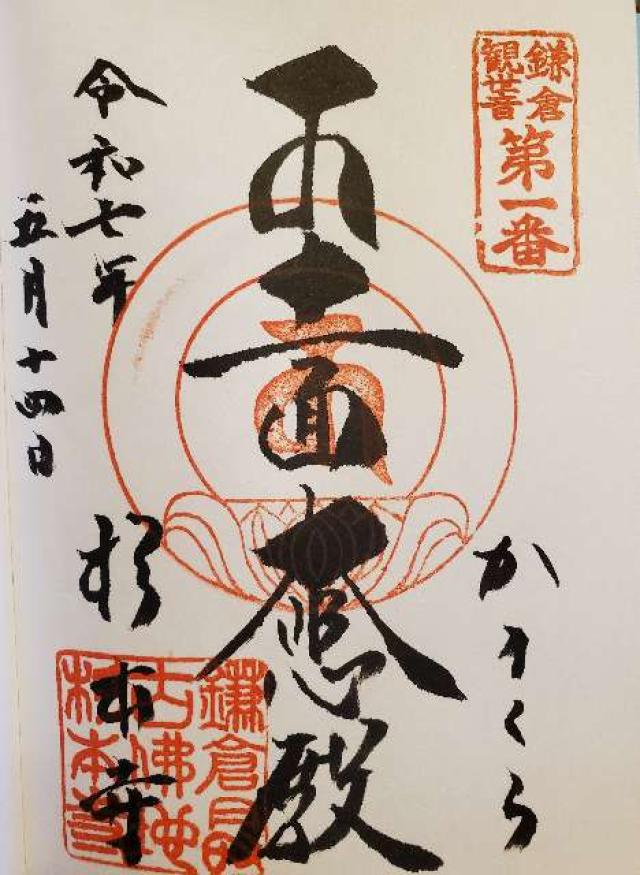 鎌倉
観世音
第一番
かまくら
十一面大悲殿
令和七年
五月十四日
杉本寺
鎌倉最
古佛地
杉本寺